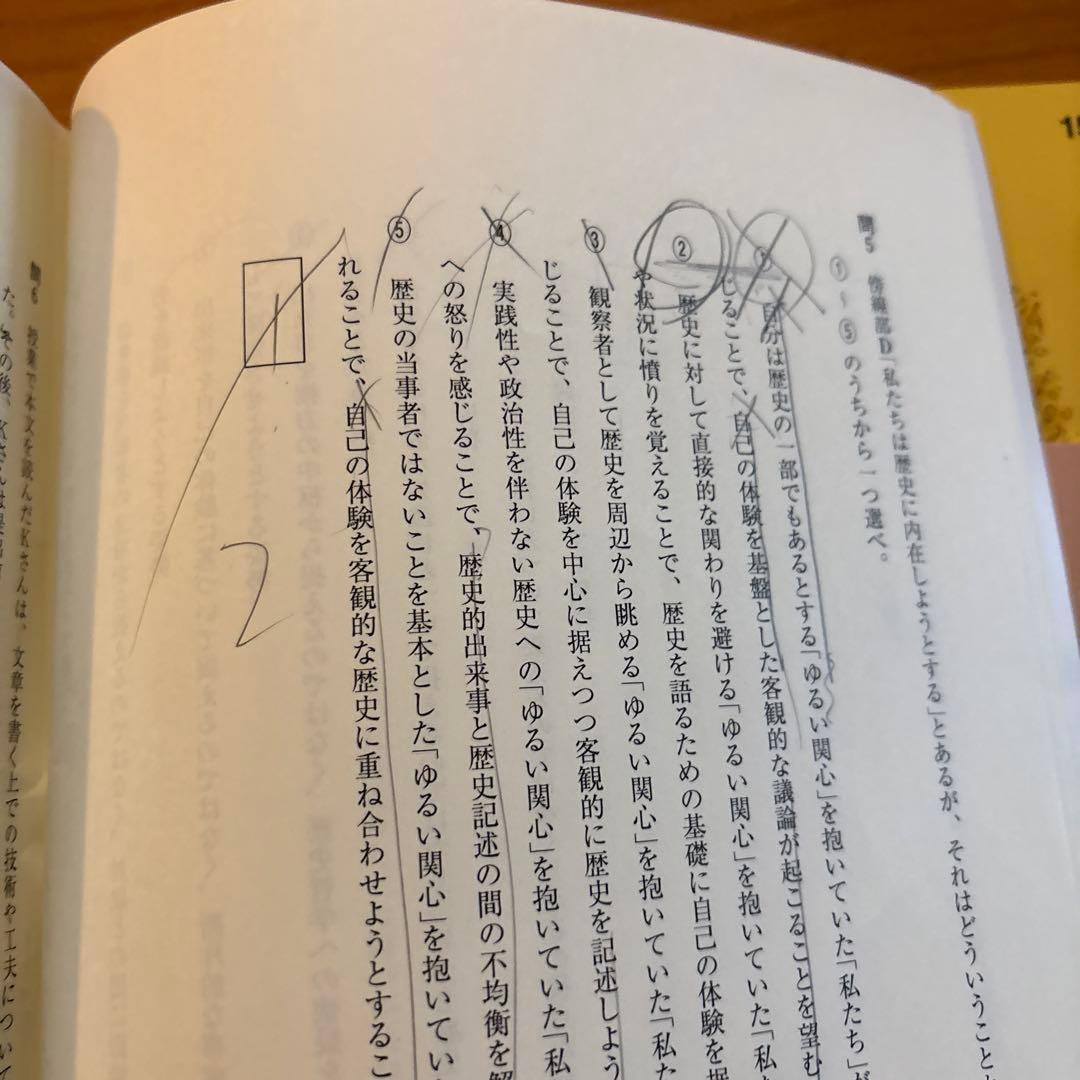 問5 傍線部D「私たちは歴史に内在しようとする」とあるが、それはどういうこと
①〜⑤のうちから一つ選べ。
① 自分は歴史の一部でもあるとする「ゆるい関心」を抱いていた「私たち」が
じることで、自己の体験を基盤とした客観的な議論が起こることを望む
② 歴史に対して直接的な関わりを避ける「ゆるい関心」を抱いていた「私
や状況に憤りを覚えることで、歴史を語るための基礎に自己の体験を据
③ 観察者として歴史を周辺から眺める「ゆるい関心」を抱いていた「私た
じることで、自己の体験を中心に据えつつ客観的に歴史を記述しよう
④ 実践性や政治性を伴わない歴史への「ゆるい関心」を抱いていた「私
への怒りを感じることで、歴史的出来事と歴史記述の間の不均衡を解
⑤ 歴史の当事者ではないことを基本とした「ゆるい関心」を抱いてい
れることで、自己の体験を客観的な歴史に重ね合わせようとするこ
1
2
問6 授業で本文を読んだKさんは、文章を書く上での技術や工夫につい
た。その後、Kさんは